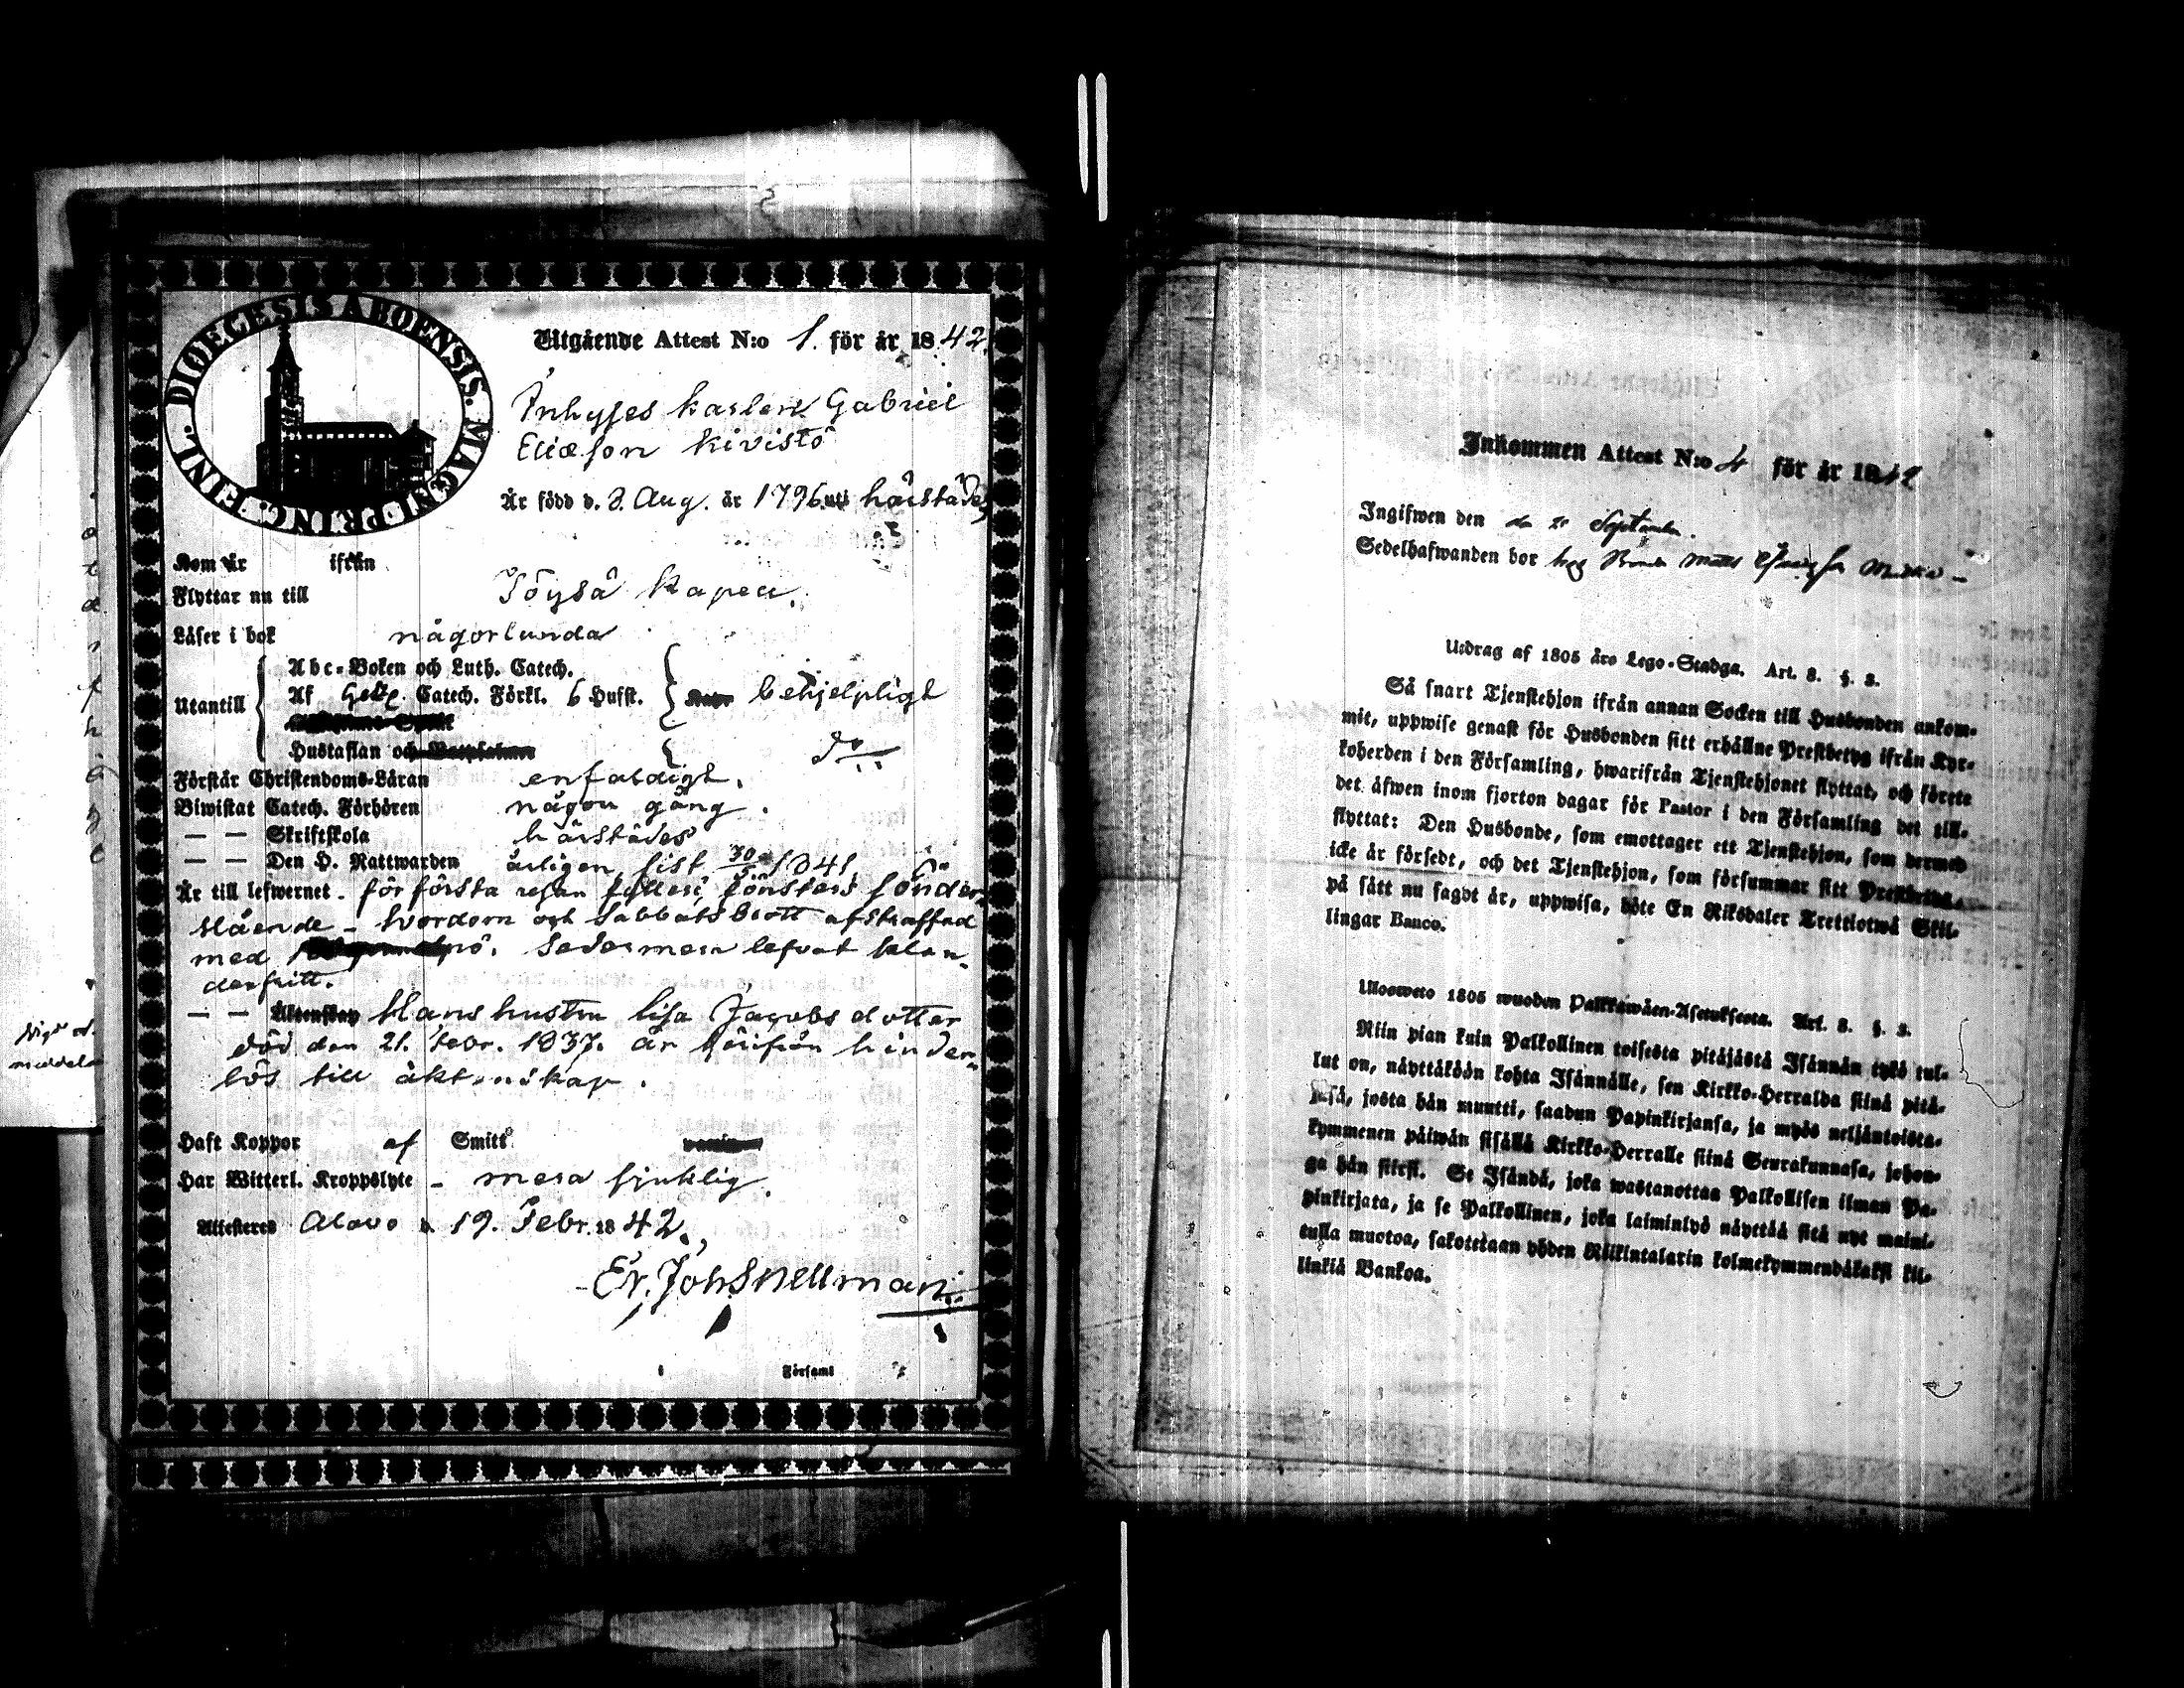 DIOECESIS ABOENSIS. MAGNI PRINC. FINL.
Utgående Attest N:o 1. för år 1842.
Inhyses karlen Gabriel
Eliæson Kivistö
Är född d. 3. Aug. år 1796 uti härstädes
Kom år ifrån
Flyttar nu till Töysä Kapell.
Läser i bok någorlunda
Utantill
Abc-Boken och Luth. Catech.
Af Catech. Förkl. 6 Hufst. behjelpligt
Hustaflan och do
Förstår Christendoms-Läran enfaldigt.
Biwistat Catech. Förhören någon gång.
— — Skriftskola härstädes
— — Den H. Nattwarden årligen sist 30/5 1841.
Är till lefwernet - för första resan fylleri, fönsters sönder-
slående - svordom och sabbatsbrott afstraffad
med spö. Sedermera lefvat klan-
derfritt.
— — Äktenskap Hans hustru Lisa Jacobsdotter
död den 21. Febr. 1837. är härifrån hinder-
lös till äktenskap.
Haft Koppor af Smitt
Har Witterl. Kroppslyte - mera sjuklig.
Attesteras Alavo d. 19. Febr. 1842.
Er. Joh Snellman
Församl
Inkommen Attest N:o 4 för år 1842
Ingifwen den September.
Sedelhafwanden bor hos Bonden Matts
Utdrag af 1805 års Lego-Stadga. Art. 8. §. 3.
Så snart Tjenstehjon ifrån annan Socken till Husbonden ankom-
mit, uppwise genast för Husbonden sitt erhållne Prestbetyg ifrån Kyr-
koherden i den Församling, hwarifrån Tjenstehjonet flyttat, och förete
det äfwen inom fjorton dagar för Pastor i den Församling det till-
flyttat: Den Husbonde, som emottager ett Tjenstehjon, som dermed
icke är försedt, och det Tjenstehjon, som försummar sitt Prestbetyg,
på sätt nu sagdt är, uppwisa, böte En Riksdaler Trettiotwå Skil-
lingar Banco.
Ulosweto 1805 wuoden Palkkawäen-Asetuksesta. Art. 8. §. 3.
Niin pian kuin Palkollinen toisesta pitäjästä Isännän tykö tul-
lut on, näyttäköön kohta Isännälle, sen Kirkko-Herralda siinä pitä-
jäsä, josta hän muutti, saadun Papinkirjansa, ja myös neljäntoista-
kymmenen päiwän sisällä Kirkko-Herralle siinä Seurakunnasa, johon-
ga hän siirsi. Se Isändä, joka wastanottaa Palkollisen ilman Pa-
pinkirjata, ja se Palkollinen, joka laiminlyö näyttää sitä nyt maini-
tulla muotoa, sakotetaan yhden Riikintalarin kolmekymmendäkaksi kil-
linkiä Bankoa.